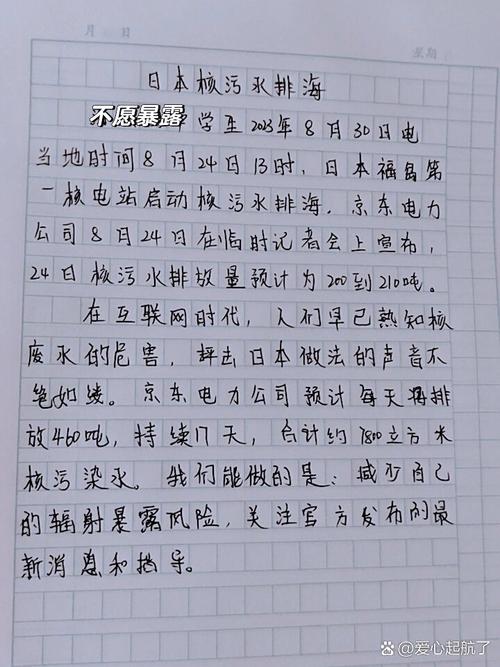 月 日
星期
日本核污水排海
不愿暴露 学生 2023年8月30日电
当地时间8月24日13时，日本福岛第
一核电站启动核污水排海．京东电力
公司8月24日在临时记者会上宣布，
24日核污水排放量预计为200到210吨。
在互联网时代，人们早已熟知核
废水的危害，抨击日本做法的声音不
绝如缕。京东电力公司预计每天将排
放460吨，持续17天，合计约7800立方米
核污染水。我们能做的是：减少自己
的辐射暴露风险，关注官方发布的最
新消息和指导。
爱心起航了